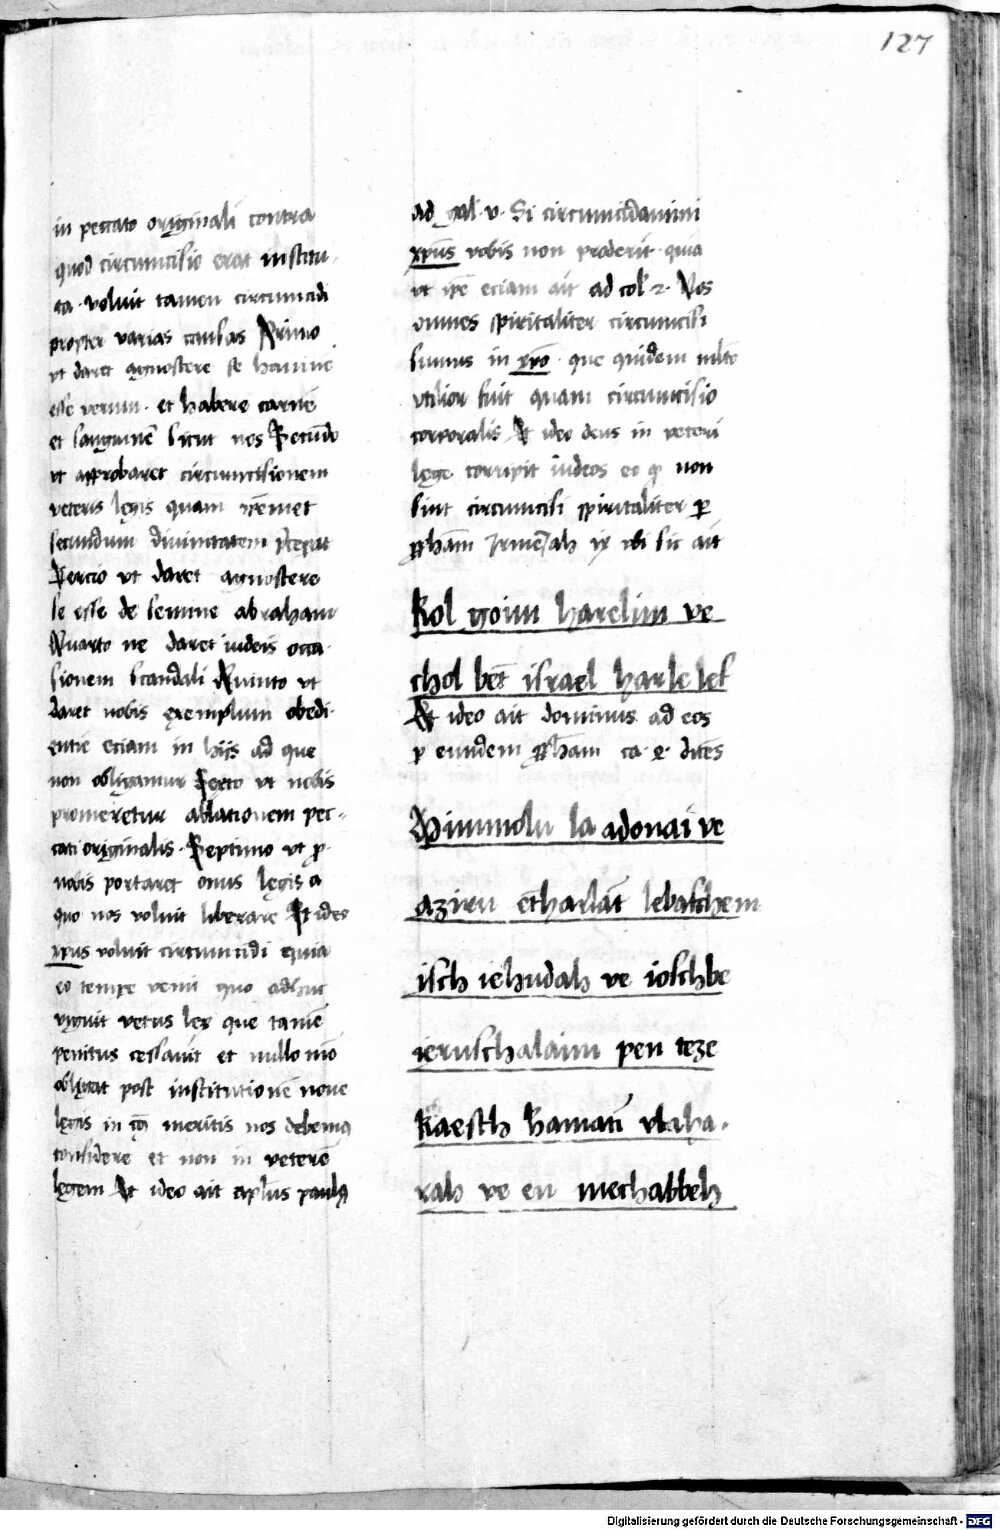 127
in peccato originali contra
quod circumcisio erat institu-
ta · voluit tamen circumcidi
propter varias causas Primo
vt daret agnoscere se hominē
esse verum · et habere carnē
et sanguinē sicut nos Secūdo
vt approbaret circumcisionem
veteris legis quam ip̄emet
secundum diuinitatem
Tercio vt daret agnoscere
se esse de semine abraham
Quarto ne daret iudeis occa-
sionem scandali Quinto vt
daret nobis exemplum obedi-
entie eciam in hijs ad que
non obligamur Sexto vt nobis
promeretur ablationem pec-
cati originalis · Septimo vt p̱
nobis portaret onus legis a
quo nos voluit liberare Et ideo
xp̄us voluit circumcidi quia
eo tempe venit quo adhuc
viguit vetus lex que tamē
penitus cessauit et nullo mō
obligat post institutionē noue
legis in cuꝰ meritis nos debemꝰ
considere et non in veterē
legem Et ideo ait ap̄lus paulꝰ
ad gal · v · Si circumcidamini
xp̄us vobis non proderit · quia
vt ip̄e eciam ait ad col · 2 · Nos
omnes spiritaliter circumcisi
sumus in xp̄o · que quidem mlto
vtilior fuit quam circumcisio
corporalis Et ideo deus in veteri
lege corripit iudeos eo ꝙ non
sint circumcisi spiritaliter ꝑ
ꝓhām Jrmeiah ix vbi sic ait
Kol goim harelim ve
chol bet israel harle lef
Et ideo ait dominus ad eos
ꝑ eundem ꝓham ca · 4 · dicēs
Himmolu la adonai ve
aziru etharlāt lebafchem
isch iehudah ve ioschbe
ieruschalaim pen teze
Kaesch hamati vbaha-
rah ve en mechabbeh
Digitalisierung gefördert durch die Deutsche Forschungsgemeinschaft - DFG